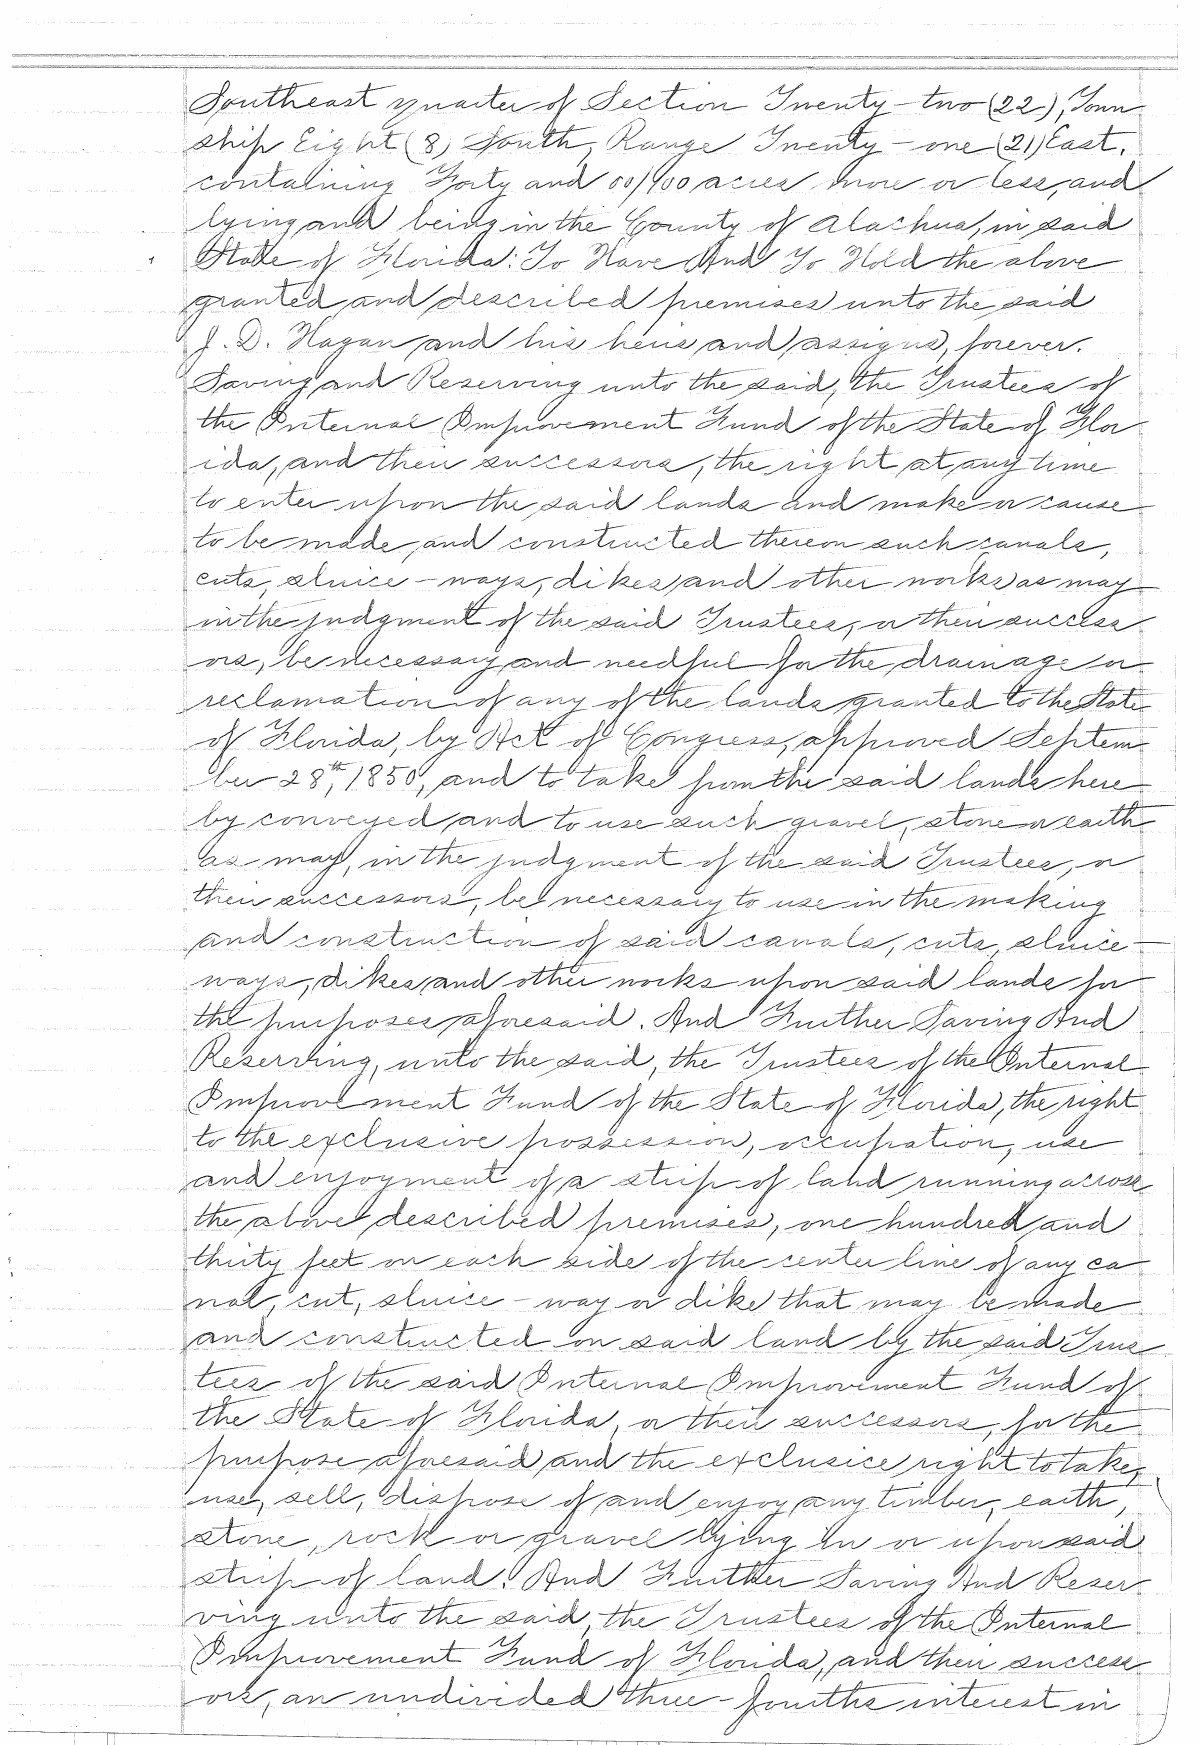 Southeast quarter of Section Twenty-two (22), Town
ship Eight (8) South, Range Twenty-one (21) East,
containing Forty and 00/100 acres more or less, and
lying and being in the County of Alachua, in said
State of Florida: To Have And To Hold the above
granted and described premises unto the said
J. D. Hagan and his heirs and assigns, forever.
Saving and Reserving unto the said, the Trustees of
the Internal Improvement Fund of the State of Flor
ida, and their successors, the right at any time
to enter upon the said lands and make or cause
to be made and constructed thereon such canals,
cuts, sluice-ways, dikes and other works as may
in the judgment of the said Trustees, or their success
ors, be necessary and needful for the drainage or
reclamation of any of the lands granted to the State
of Florida, by Act of Congress, approved Septem
ber 28th, 1850, and to take from the said lands here
by conveyed and to use such gravel, stone or earth
as may, in the judgment of the said Trustees, or
their successors, be necessary to use in the making
and construction of said canals, cuts, sluice-
ways, dikes and other works upon said lands for
the purposes aforesaid. And Further Saving And
Reserving, unto the said, the Trustees of the Internal
Improvement Fund of the State of Florida, the right
to the exclusive possession, occupation, use
and enjoyment of a strip of land running across
the above described premises, one hundred and
thirty feet on each side of the center line of any ca
nal, cut, sluice-way or dike that may be made
and constructed on said land by the said Trus
tees of the said Internal Improvement Fund of
the State of Florida, or their successors, for the
purpose aforesaid and the exclusice right to take,
use, sell, dispose of and enjoy any timber, earth,
stone, rock or gravel lying in or upon said
strip of land. And Further Saving And Reser
ving unto the said, the Trustees of the Internal
Improvement Fund of Florida, and their success
ors, an undivided three-fourths interest in